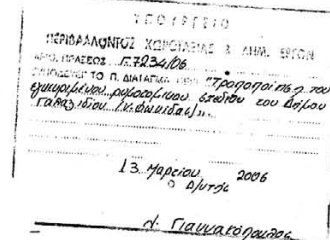 ΥΠΟΥΡΓΕΙΟ
ΠΕΡΙΒΑΛΛΟΝΤΟΣ ΧΩΡΟΤΑΞΙΑΣ & ΔΗΜ. ΕΡΓΩΝ
ΑΡΙΘ. ΠΡΑΞΕΩΣ Π.7234/06
ΣΥΝΟΔΕΥΕΙ ΤΟ Π. ΔΙΑΤΑΓΜΑ "Τροποποίηση του
εγκεκριμένου ρυμοτομικού σχεδίου του Δήμου
Γαλαξιδίου (ν. Φωκίδας)".
13 Μαρτίου 2006
Ο Δ/ντής
Ν. Γιαννακόπουλος